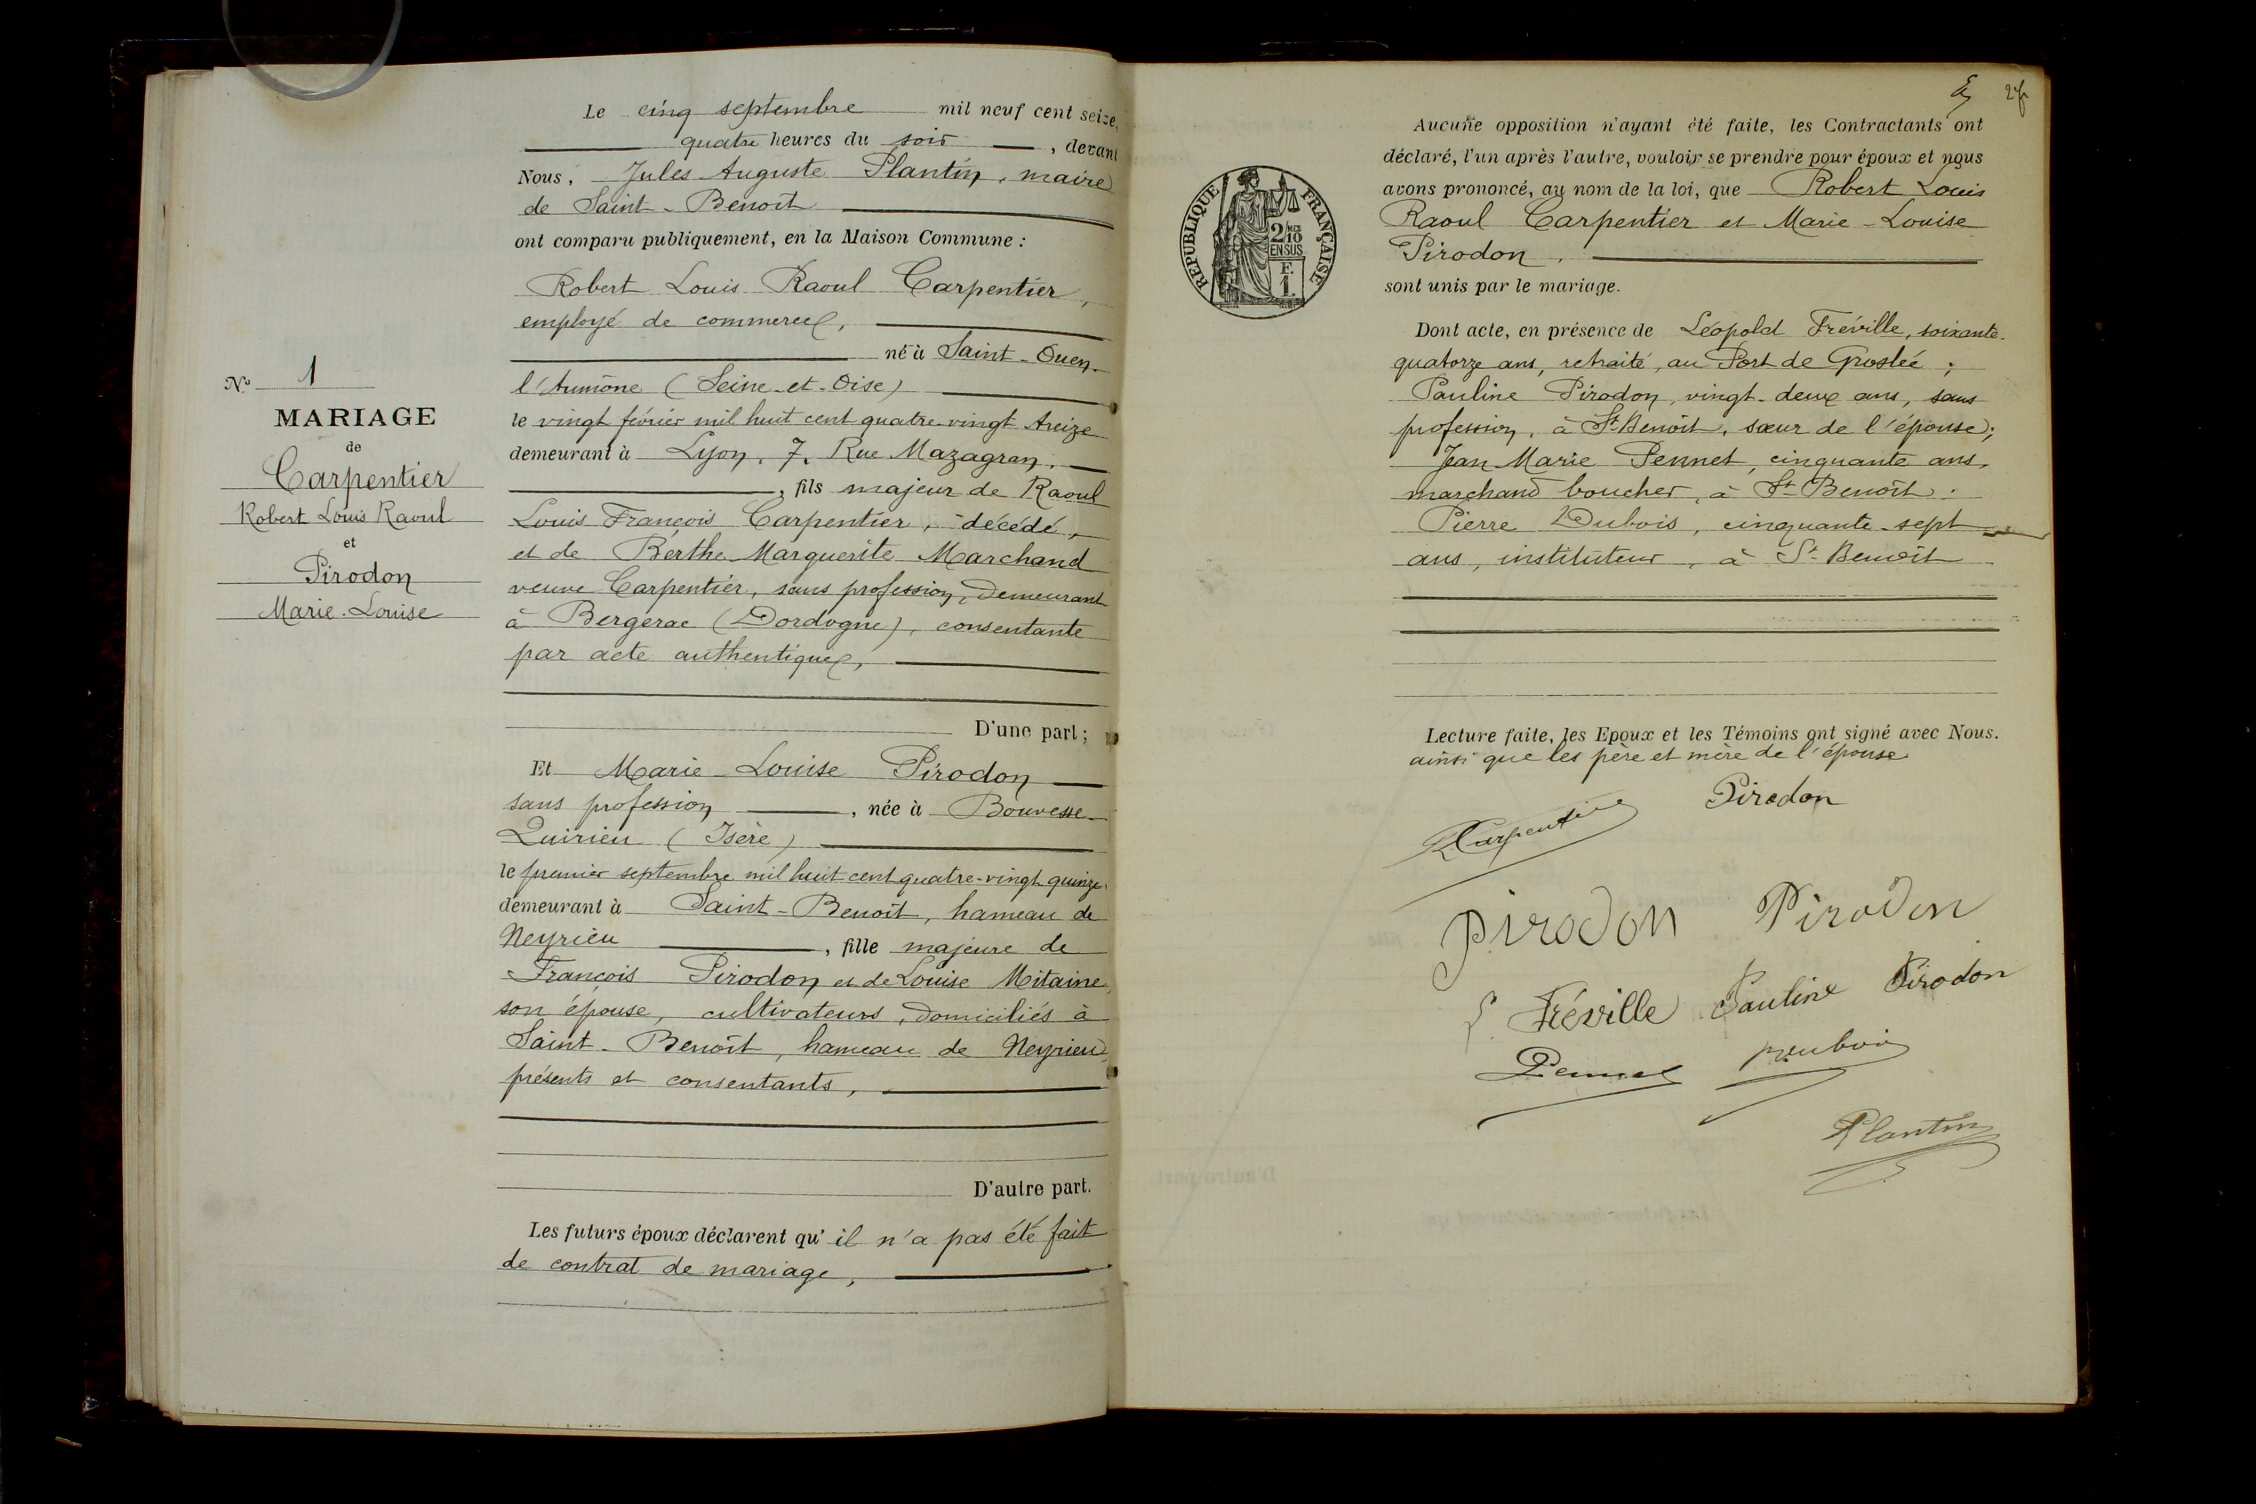 Le cinq septembre mil neuf cent seize,
quatre heures du soir, devant
Nous, Jules Auguste Plantin, maire
de Saint-Benoît
ont comparu publiquement, en la Maison Commune :
Robert Louis Raoul Carpentier,
employé de commerce,
né à Saint-Ouen-
l'Aumône (Seine-et-Oise)
le vingt février mil huit cent quatre-vingt treize
demeurant à Lyon, 7, Rue Mazagran,
, fils majeur de Raoul
Louis François Carpentier, décédé,
et de Berthe Marguerite Marchand
veuve Carpentier, sans profession, demeurant
à Bergerac (Dordogne), consentante
par acte authentique,
D'une part ;
Et Marie-Louise Pirodon
sans profession, née à Bouvesse-
Quirieu (Isère)
le premier septembre mil huit cent quatre-vingt quinze,
demeurant à Saint-Benoît, hameau de
Neyrieu, fille majeure de
François Pirodon et de Louise Mitaine,
son épouse, cultivateurs, domiciliés à
Saint-Benoît, hameau de Neyrieu,
présents et consentants,
D'autre part.
Les futurs époux déclarent qu'il n'a pas été fait
de contrat de mariage,
No 1
MARIAGE
de
Carpentier
Robert Louis Raoul
et
Pirodon
Marie-Louise
Aucune opposition n'ayant été faite, les Contractants ont
déclaré, l'un après l'autre, vouloir se prendre pour époux et nous
avons prononcé, au nom de la loi, que Robert Louis
Raoul Carpentier et Marie-Louise
Pirodon,
sont unis par le mariage.
Dont acte, en présence de Léopold Fréville, soixante-
quatorze ans, retraité, au Port de Groslée ;
Pauline Pirodon, vingt-deux ans, sans
profession, à St Benoît, sœur de l'épouse ;
Jean-Marie Pennet, cinquante ans,
marchand boucher, à St-Benoît ;
Pierre Dubois, cinquante-sept
ans, instituteur, à St-Benoît
Lecture faite, les Epoux et les Témoins ont signé avec Nous.
ainsi que les père et mère de l'épouse
Carpentier Pirodon
Pirodon Pirodon
L Fréville Pauline Pirodon
Pennet Dubois
Plantin
RÉPUBLIQUE FRANÇAISE
2/10
EN SUS
F.
1.